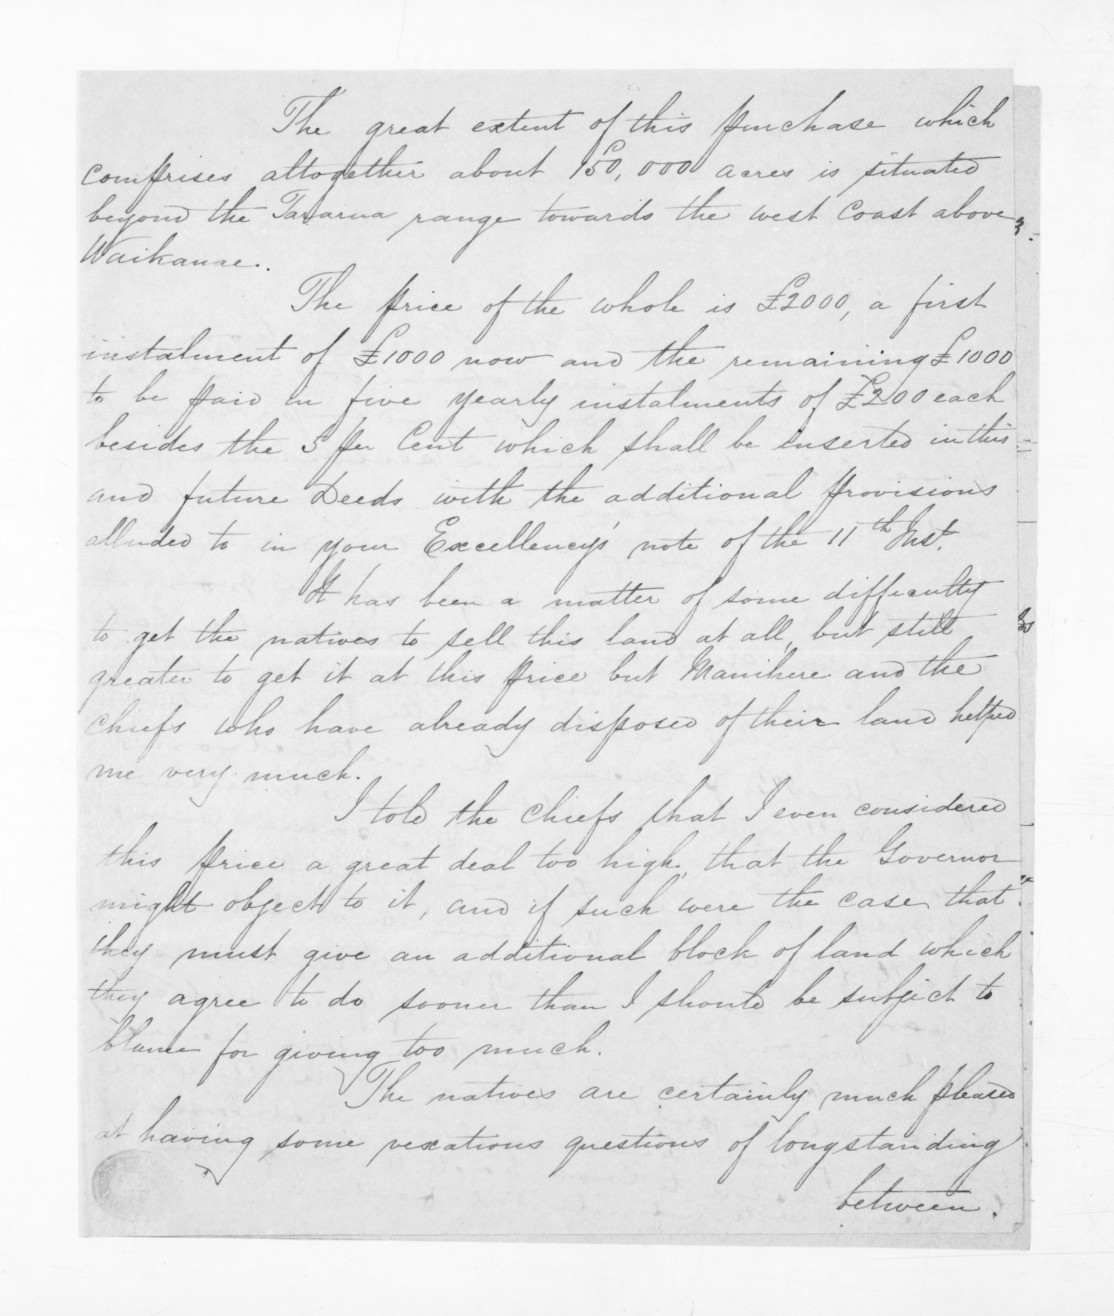 The great extent of this purchase which
comprises altogether about 150,000 acres is situated
beyond the Tararua range towards the west Coast above
Waikanae.
The price of the whole is £2000, a first
instalment of £1000 now and the remaining £1000
to be paid in five yearly instalments of £200 each
besides the 5 per Cent which shall be inserted in this
and future Deeds with the additional provisions
alluded to in your Excellency's note of the 11th Inst.
It has been a matter of some difficulty
to get the natives to sell this land at all, but still
greater to get it at this price but Manihere and the
chiefs who have already disposed of their land helped
me very much.
I told the chiefs that I even considered
this price a great deal too high, that the Governor
might object to it, and if such were the case, that
they must give an additional block of land which
they agree to do sooner than I should be subject to
blame for giving too much.
The natives are certainly much pleased
at having some vexatious questions of longstanding
between.